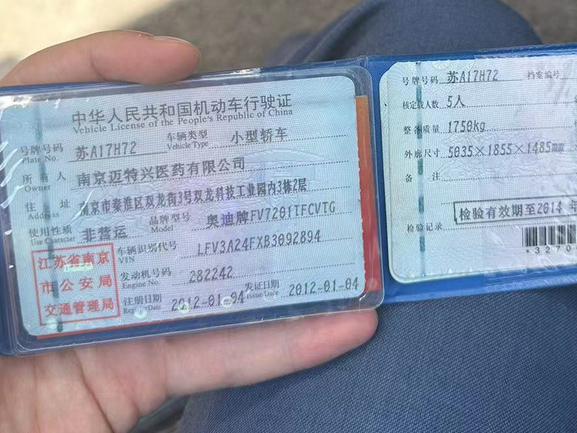 中华人民共和国机动车行驶证
Vehicle License of the People's Republic of China
号牌号码 苏A17H72 车辆类型 小型轿车
Plate No. Vehicle Type
所有人 南京迈特兴医药有限公司
Owner
住址 南京市秦淮区双龙街3号双龙科技工业园内3栋2层
Address
使用性质 非营运 品牌型号 奥迪牌FV7201TFCVTG
Use Character Model
车辆识别代号 LFV3A24FXB3092894
VIN
发动机号码 282242
Engine No.
注册日期 2012-01-04 发证日期 2012-01-04
Register Date Issue Date
江苏省南京
市公安局
交通管理局
号牌号码 苏A17H72 档案编号
核定载人数 5人
整备质量 1750kg
外廓尺寸 5035×1855×1485mm
备注
检验有效期至2014年
检验记录
*3270